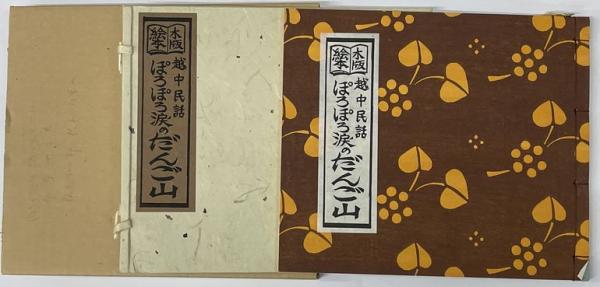 木版
絵本
越中民話
ぽろぽろ涙のだんご山
木版
絵本
越中民話
ぽろぽろ涙のだんご山